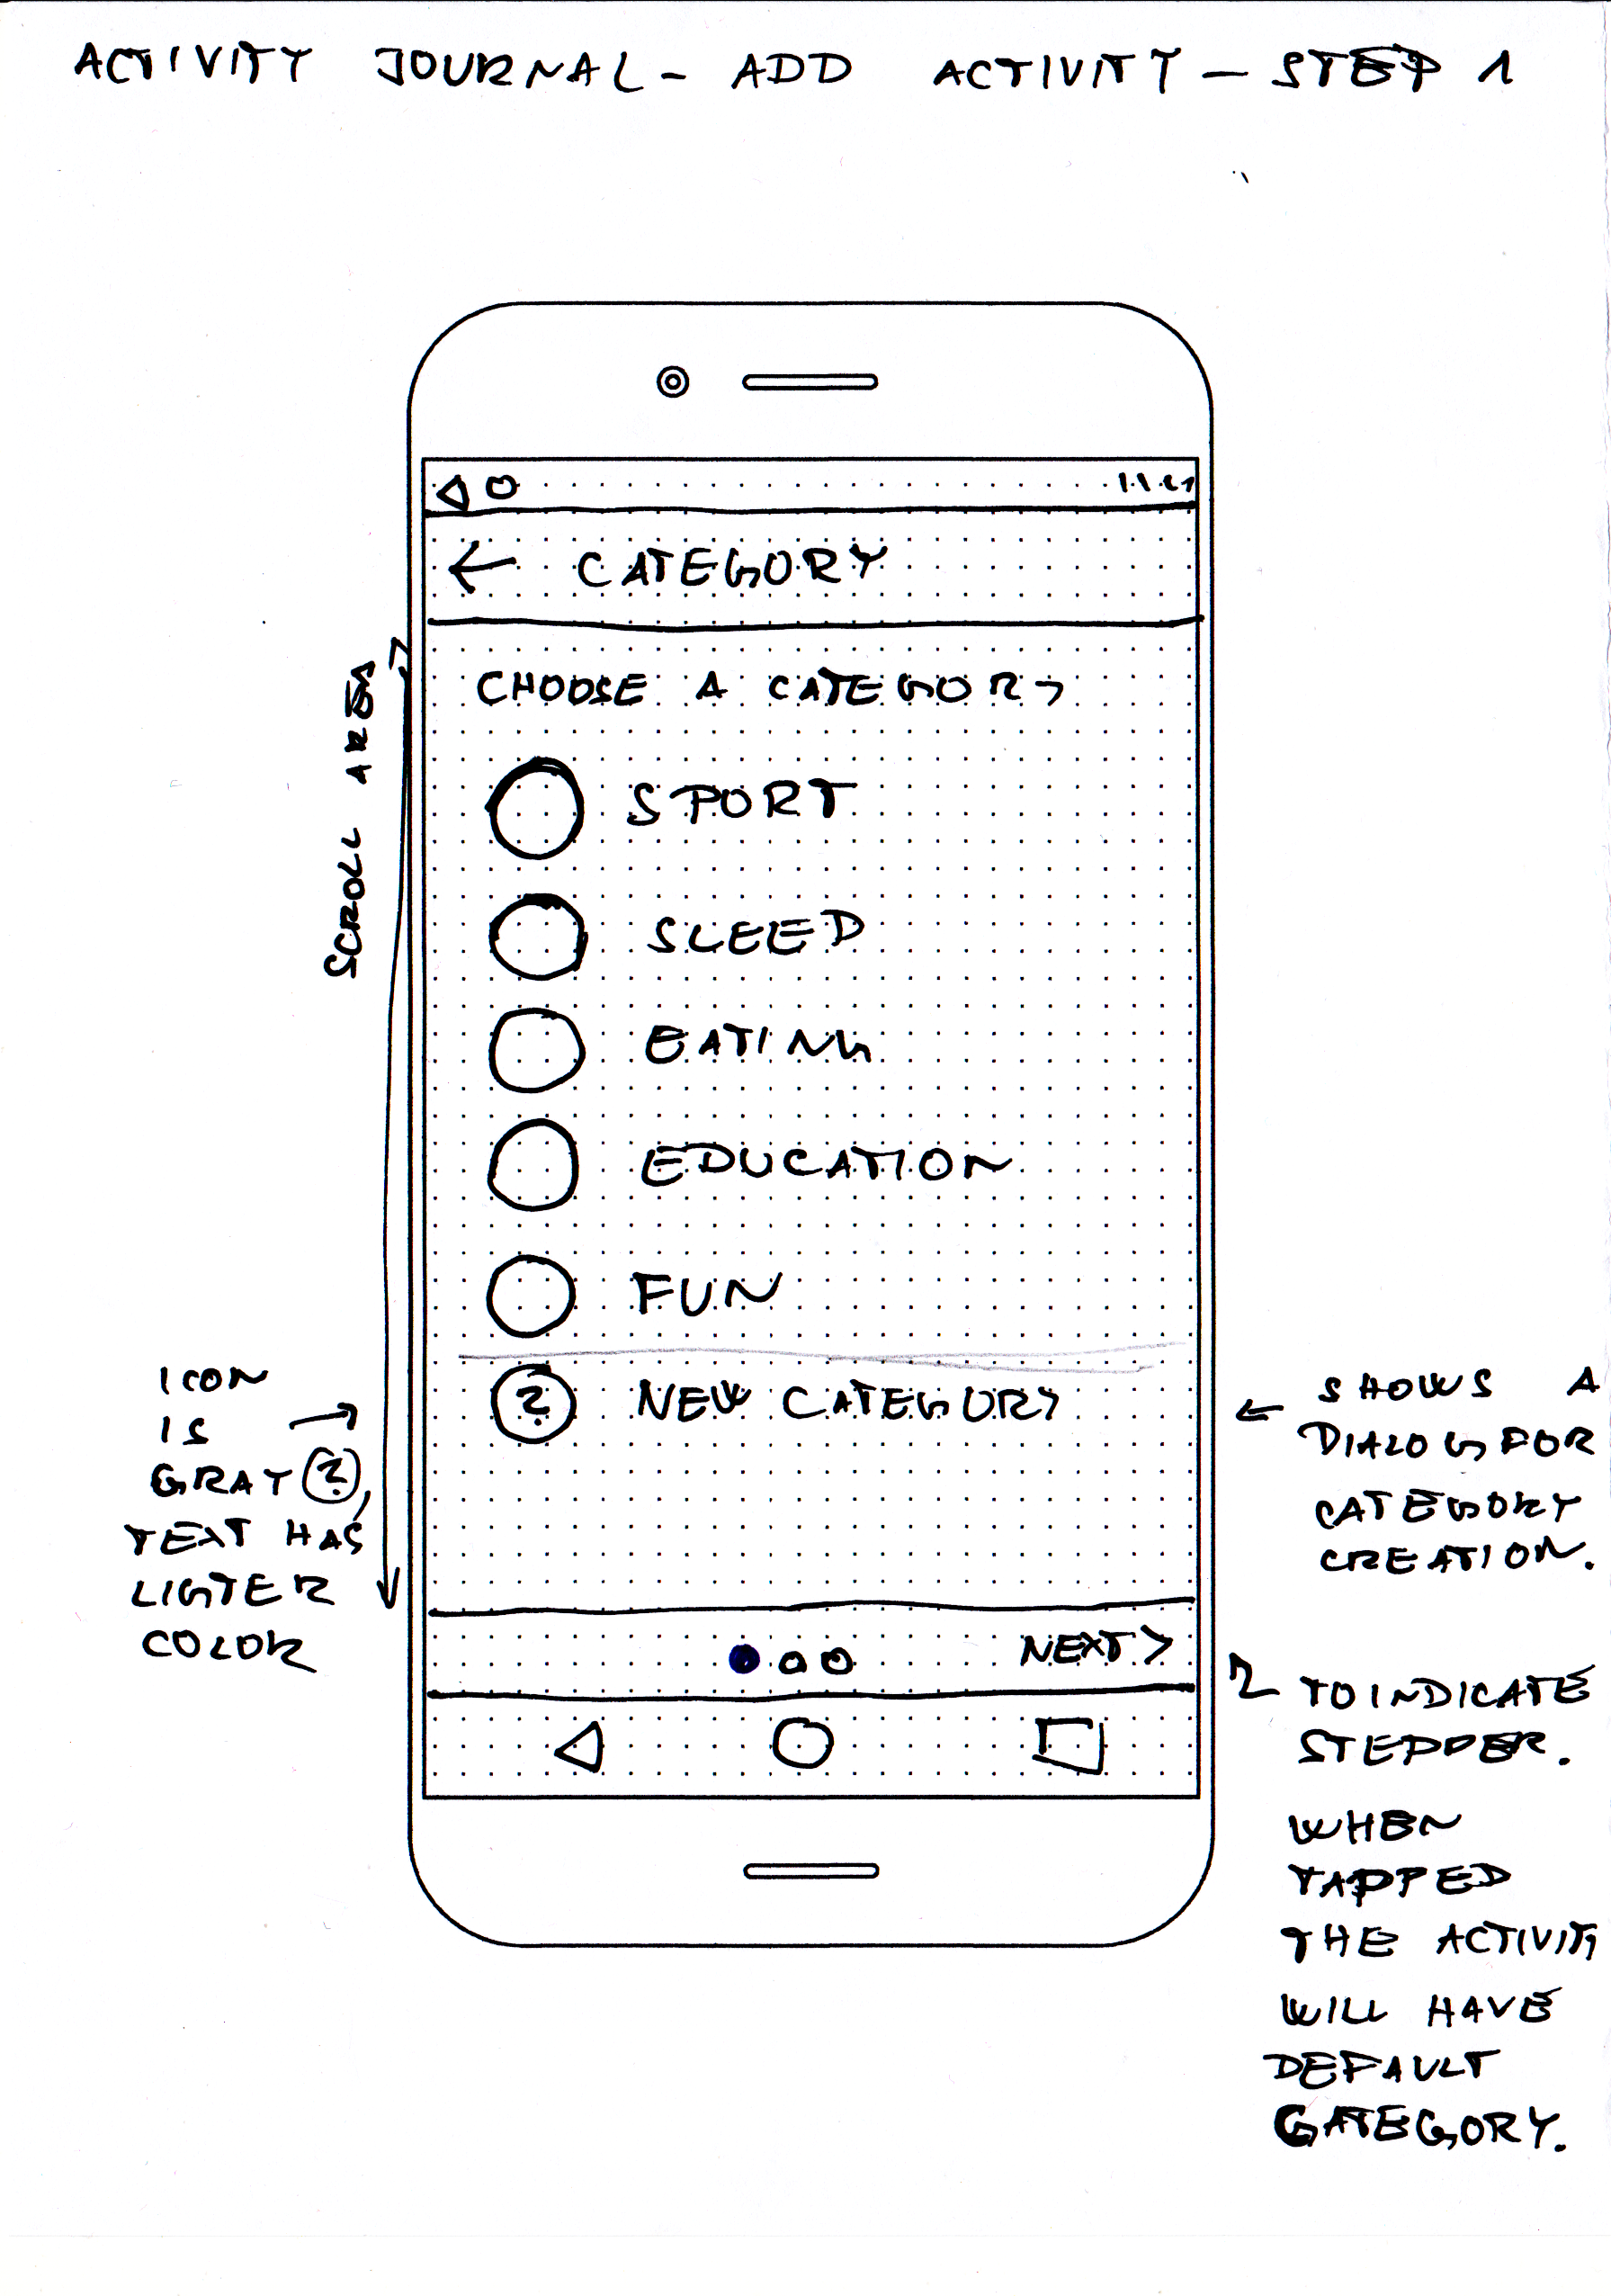 ACTIVITY JOURNAL - ADD ACTIVITY - STEP 1
CATEGORY
CHOOSE A CATEGORY
SPORT
SLEEP
EATING
EDUCATION
FUN
? NEW CATEGORY
NEXT >
SCROLL AREA
ICON
IS
GRAY ?,
TEXT HAS
LIGTER
COLOR
SHOWS A
DIALOG FOR
CATEGORY
CREATION.
TO INDICATE
STEPPER.
WHEN
TAPPED
THE ACTIVITY
WILL HAVE
DEFAULT
CATEGORY.